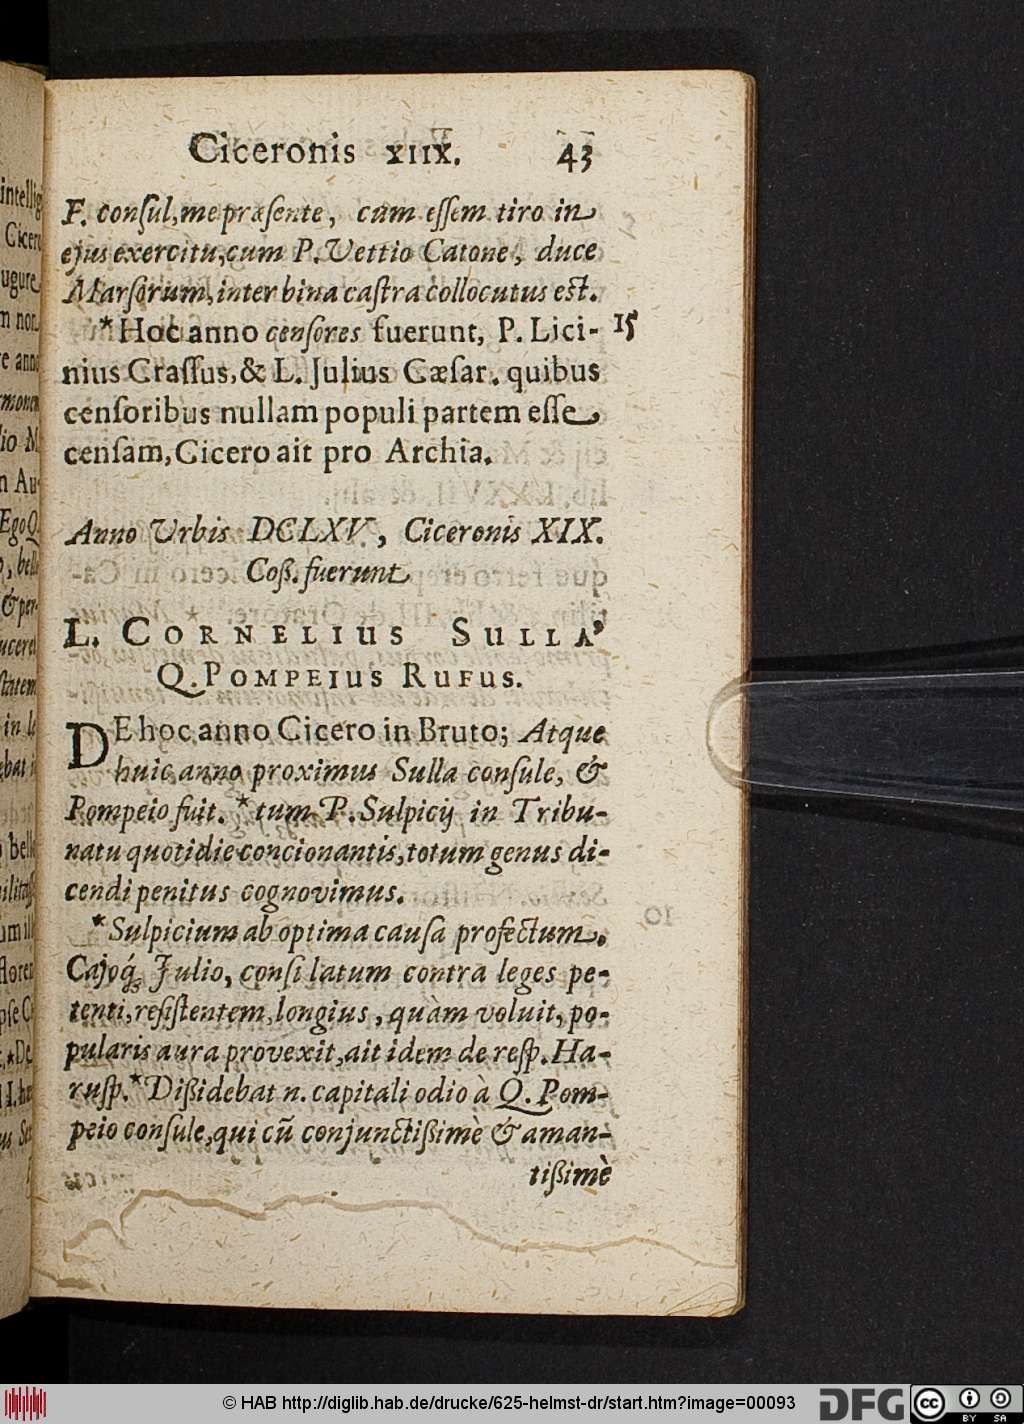 Ciceronis XIIX. 43
F. conſul, me præſente, cum eſſem tiro in
ejus exercitu, cum P. Vettio Catone, duce
Marſorum, inter bina caſtra collocutus est.
*Hoc anno cenſores fuerunt, P. Lici- 15
nius Craſſus, & L. Julius Cæſar. quibus
cenſoribus nullam populi partem eſſe
cenſam, Cicero ait pro Archia.
Anno Urbis DCLXV, Ciceronis XIX.
Coß. fuerunt
L. CORNELIUS SULLA,
Q. POMPEIUS RUFUS.
DE hoc anno Cicero in Bruto; Atque
huic anno proximus Sulla conſule, &
Pompeio fuit. * tum P. Sulpicij in Tribu-
natu quotidie concionantis, totum genus di-
cendi penitus cognovimus.
*Sulpicium ab optima cauſa profectum.
Cajoq́; Julio, conſulatum contra leges pe-
tenti, reſiſtentem, longius, quàm voluit, po-
pularis aura provexit, ait idem de reſp. Ha-
ruſp. * Dißidebat n. capitali odio à Q. Pom-
peio conſule, qui cũ conjunctißimè & aman-
tißimè
intellig
Cicero
augure
© HAB http://diglib.hab.de/drucke/625-helmst-dr/start.htm?image=00093
DFG
cc BY SA